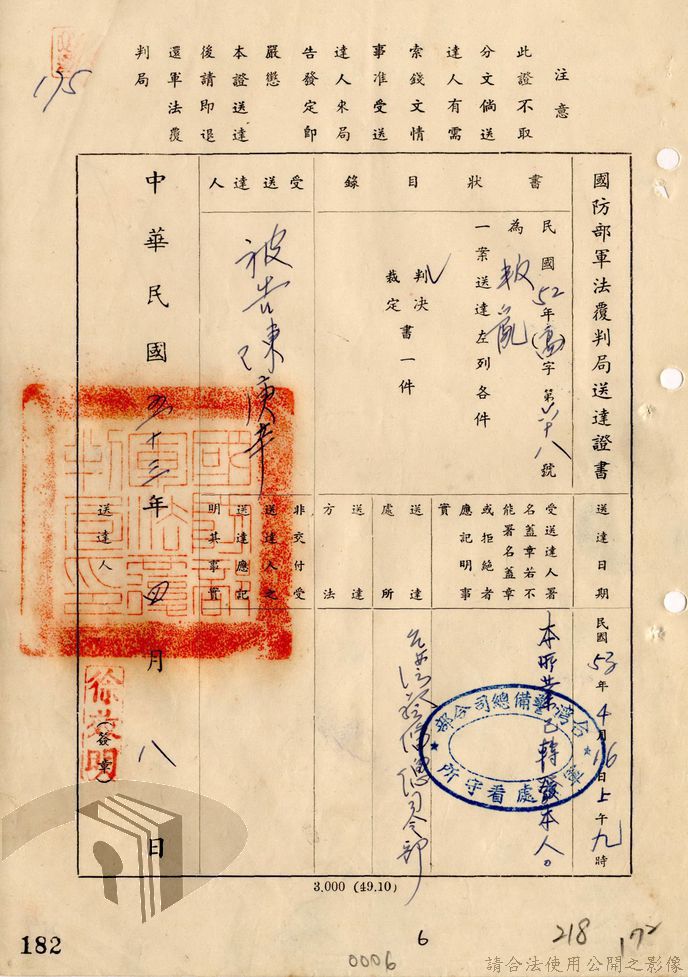 國防部軍法覆判局送達證書
送達日期
民國53年4月16日上午九時
書狀目錄
民國52年(高)字第六十八號
為叛亂
一案送達左列各件
判決
裁定書一件
受送達人署
名蓋章若不
能署名蓋章
或拒絕者
應記明事
實
本所業已轉發本人。
台灣警備總司令部
軍法處看守所
送達處所
台灣警備總司令部
送達方法
受送達人
被告陳庚辛
非交付受
送達人之
送達應記
明其事實
中華民國五十三年四月八日
送達人
徐英明
(簽章)
國防部
軍法覆
判局印
注意
此證不取
分文倘送
達人有需
索錢文情
事准受送
達人來局
告發定即
嚴懲
本證送達
後請即退
還軍法覆
判局
175
3.000 (49.10)
182
6
0006
218
172
請合法使用公開之影像